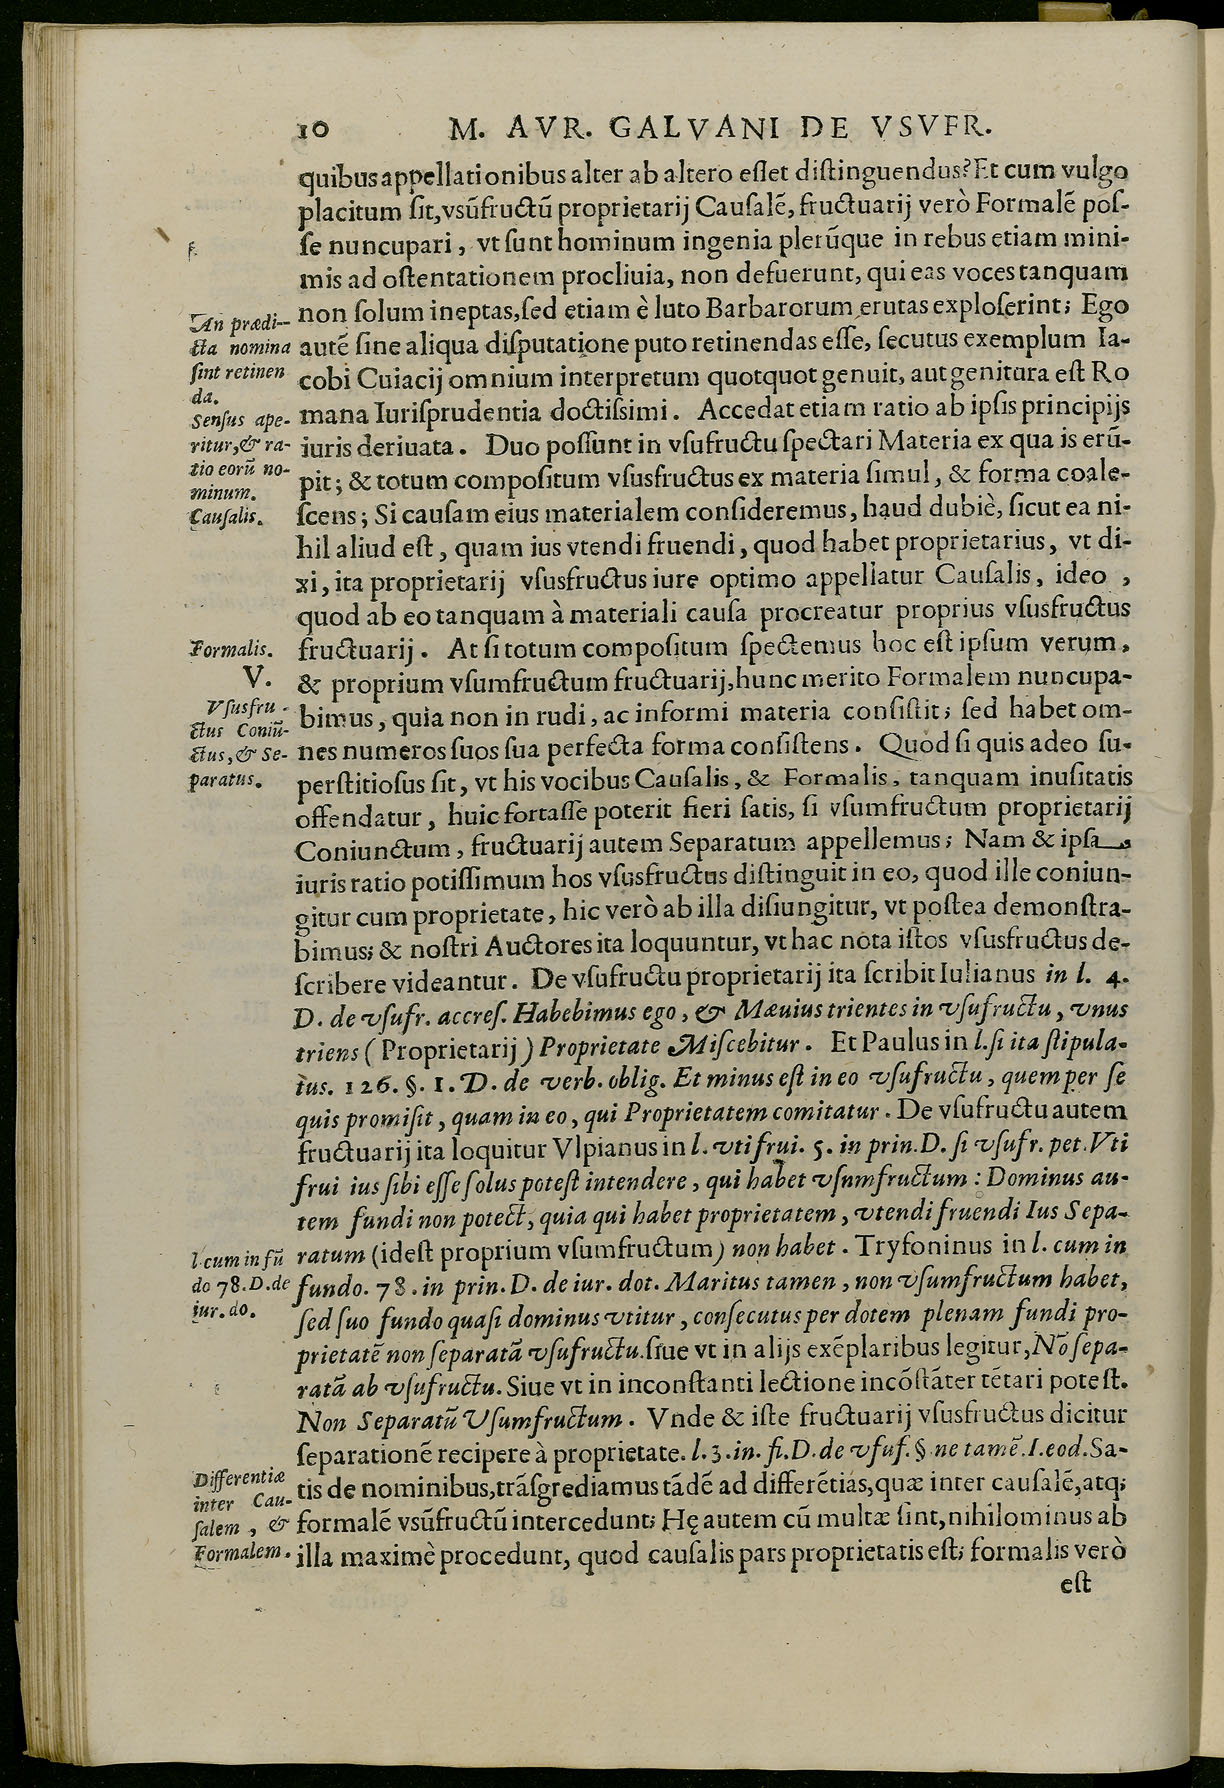 10 M. AVR. GALVANI DE VSVFR.
quibus appellationibus alter ab altero esset distinguendus? Et cum vulgo
placitum sit, vsũfructũ proprietarij Causalẽ, fructuarij verò Formalẽ pos-
se nuncupari, vt sunt hominum ingenia plerũque in rebus etiam mini-
mis ad ostentationem procliuia, non defuerunt, qui eas voces tanquam
non solum ineptas, sed etiam è luto Barbarorum erutas exploserint; Ego
autẽ sine aliqua disputatione puto retinendas esse, secutus exemplum Ia-
cobi Cuiacij omnium interpretum quotquot genuit, aut genitura est Ro
mana Iurisprudentia doctissimi. Accedat etiam ratio ab ipsis principijs
iuris deriuata. Duo possunt in vsufructu spectari Materia ex qua is erũ-
pit; & totum compositum vsusfructus ex materia simul, & forma coale-
scens; Si causam eius materialem consideremus, haud dubiè, sicut ea ni-
hil aliud est, quam ius vtendi fruendi, quod habet proprietarius, vt di-
xi, ita proprietarij vsusfructus iure optimo appellatur Causalis, ideo,
quod ab eo tanquam à materiali causa procreatur proprius vsusfructus
fructuarij. At si totum compositum spectemus hoc est ipsum verum,
& proprium vsumfructum fructuarij, hunc merito Formalem nuncupa-
bimus, quia non in rudi, ac informi materia consistit; sed habet om-
nes numeros suos sua perfecta forma consistens. Quod si quis adeo su-
perstitiosus sit, vt his vocibus Causalis, & Formalis, tanquam inusitatis
offendatur, huic fortasse poterit fieri satis, si vsumfructum proprietarij
Coniunctum, fructuarij autem Separatum appellemus; Nam & ipsa
iuris ratio potissimum hos vsusfructus distinguit in eo, quod ille coniun-
gitur cum proprietate, hic verò ab illa disiungitur, vt postea demonstra-
bimus; & nostri Auctores ita loquuntur, vt hac nota istos vsusfructus de-
scribere videantur. De vsufructu proprietarij ita scribit Iulianus in l. 4.
D. de vsufr. accres. Habebimus ego, & Mæuius trientes in vsufructu, vnus
triens (Proprietarij) Proprietate Miscebitur. Et Paulus in l. si ita stipula-
tus. 126. §. 1. D. de verb. oblig. Et minus est in eo vsufructu, quem per se
quis promisit, quam in eo, qui Proprietatem comitatur. De vsufructu autem
fructuarij ita loquitur Vlpianus in l. vti frui. 5. in prin. D. si vsufr. pet. Vti
frui ius sibi esse solus potest intendere, qui habet vsnmfructum: Dominus au-
tem fundi non potect, quia qui habet proprietatem, vtendi fruendi Ius Sepa-
ratum (idest proprium vsumfructum) non habet. Tryfoninus in l. cum in
fundo. 78. in prin. D. de iur. dot. Maritus tamen, non vsumfructum habet,
sed suo fundo quasi dominus vtitur, consecutus per dotem plenam fundi pro-
prietatẽ non separatã vsufructu. siue vt in alijs exẽplaribus legitur, Nõ sepa-
ratã ab vsufructu. Siue vt in inconstanti lectione incõstãter tẽtari potest.
Non Separatũ Vsumfructum. Vnde & iste fructuarij vsusfructus dicitur
separationẽ recipere à proprietate. l. 3. in. fi. D. de vsuf. § ne tamẽ. I. eod. Sa-
tis de nominibus, trãsgrediamus tãdẽ ad differẽtias, quæ inter causalẽ, atq;
formalẽ vsũfructũ intercedunt; Hę autem cũ multæ sint, nihilominus ab
illa maximè procedunt, quod causalis pars proprietatis est; formalis verò
est
An prædi-
cta nomina
sint retinen
da.
Sensus ape-
ritur, & ra-
tio eorũ no-
minum.
Causalis.
Formalis.
V.
Vsusfru-
ctus Coniũ-
ctus, & Se-
paratus.
l. cum in fũ
do 78. D. de
iur. do.
Differentiæ
inter Cau-
salem, &
Formalem.